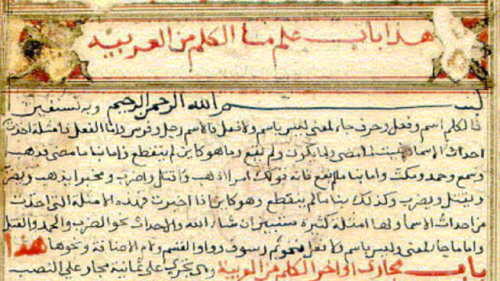 هذا باب علم ما الكلم من العربية
بسم الله الرحمن الرحيم وبه نستعين
فالكلم اسم وفعل وحرف جاء لمعنى ليس باسم ولا فعل فالاسم رجل وفرس واما الفعل فامثلة اخذت
احداث الاسماء وبنيت لما مضى ولما يكون ولم يقع وما هو كاين لم ينقطع فاما بنا ما مضى فذهب
وسمع وحمد ومكث واما بنا ما لم يقع فانه قولك امرا اذهب واقتل واضرب ومخبرا يذهب
ويقتل ويضرب وكذلك بنا ما لم ينقطع وهو كاين اذا اخبرت فهذه الامثلة التي اخذت
من احداث الاسما ولها امثلة كثيرة ستبين ان شا الله والاحداث نحو الضرب والحمد والقتل
واما ما جا لمعنى وليس باسم ولا فعل فنحو ثم وسوف وواو القسم ولام الاضافة ونحوها هذا
باب مجاري اواخر الكلم من العربية وهي تجري على ثمانية مجار على النصب